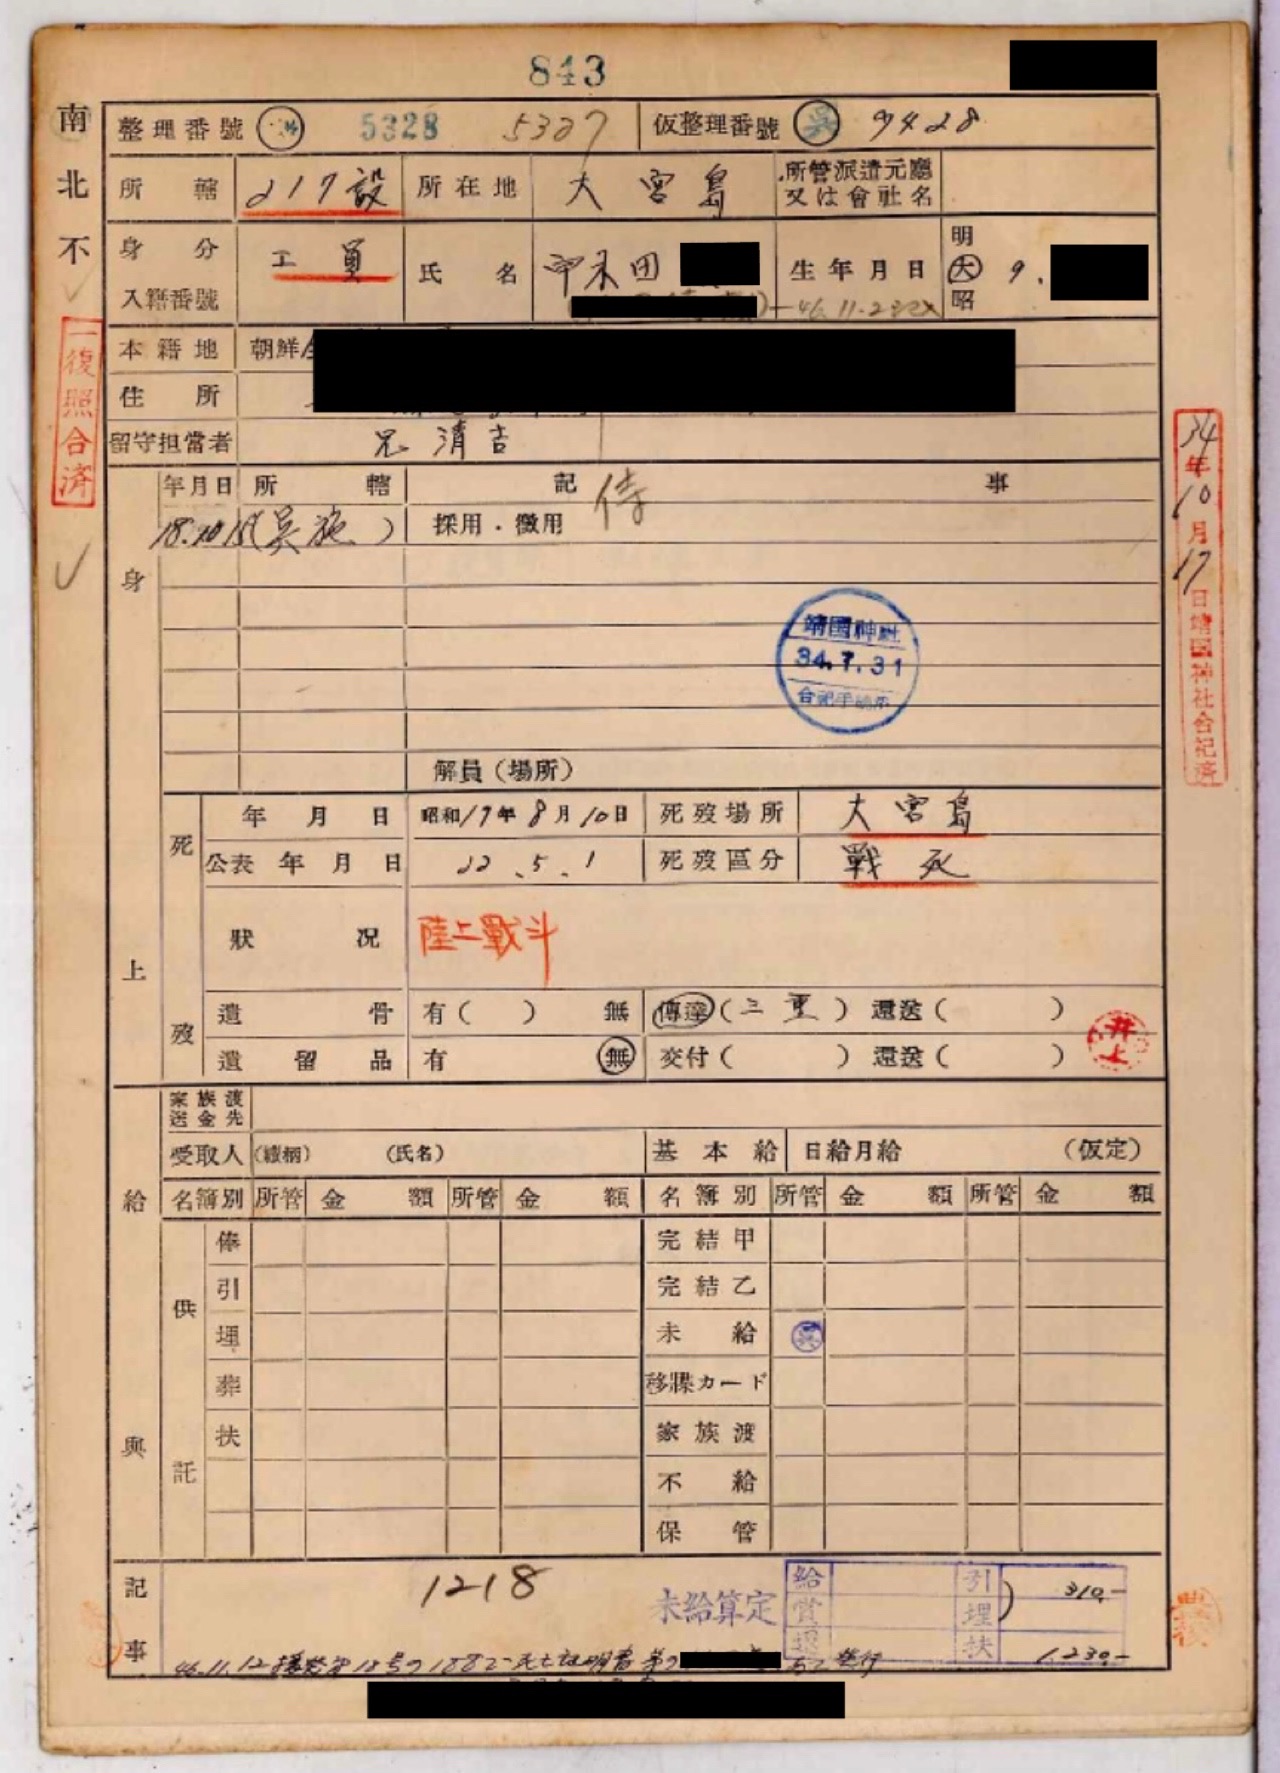 843
南北不
整理番號 5328 5327 仮整理番號 呉 9428
所轄 217設 所在地 大宮島 所管派遣元廳又は會社名
身分 工員 氏名 田 生年月日 明 大 昭 9.
入籍番號 46.11.2
本籍地 朝鮮
住所
留守担當者 兄 清吉
一復照合済
年月日 所轄 記事
(呉施) 採用・徴用
34年10月17日靖國神社合祀済
靖國神社
34.7.31
合祀手續済
解員(場所)
身上
死歿
年月日 昭和19年8月10日 死歿場所 大宮島
公表年月日 22.5.1 死歿區分 戰死
狀況 陸上戰斗
遺骨 有( ) 無 傳達(三重) 還送( )
遺留品 有 無 交付( ) 還送( )
井上
給與
家族渡送金先
受取人 (續柄) (氏名) 基本給 日給月給 (仮定)
名簿別 所管 金額 所管 金額 名簿別 所管 金額 所管 金額
供託
俸 完結甲
引 完結乙
埋 未給 呉
葬 移牒カード
扶 家族渡
不給
保管
記事
1218
未給算定 給 引 310.-
賞 埋
扶 1,230.-
46.11.12